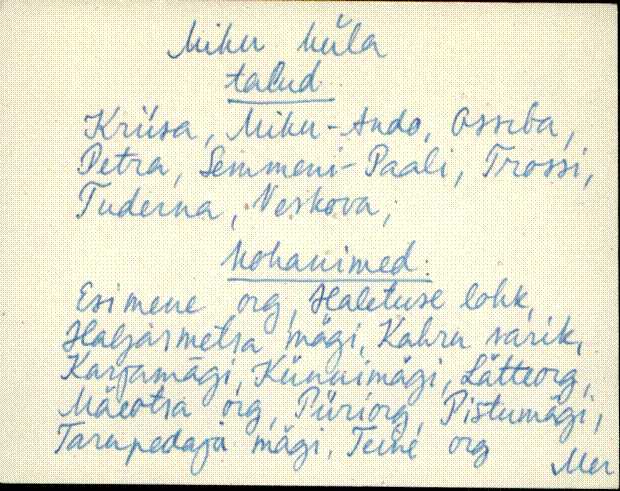 Miku küla
talud
Kriisa, Miku-Ando, Osseba,
Petra, Semmeni-Paali, Trossi,
Tuderna, Veskova,
kohanimed:
Esimene org, Haletuse lohk,
Haljasmetsa mägi, Kahru sarik,
Karjamägi, Künnimägi, Lätteorg,
Mäeotsa org, Püriorg, Pistumägi,
Tarupedaja mägi, Teine org
Mer